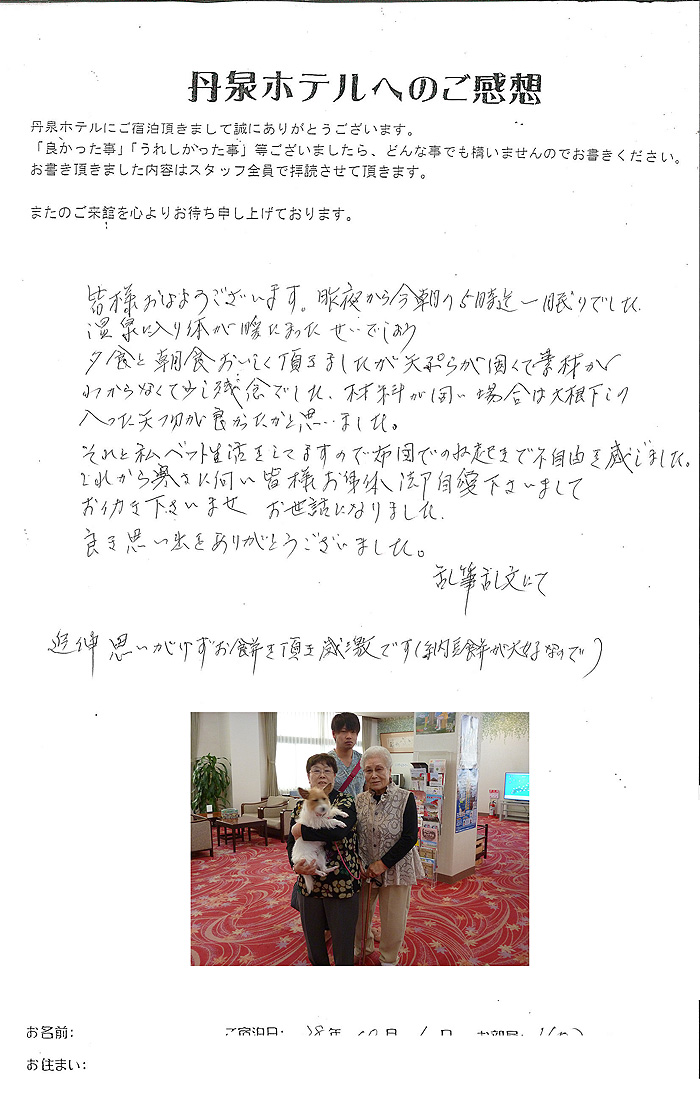 丹泉ホテルへのご感想
丹泉ホテルにご宿泊頂きまして誠にありがとうございます。
「良かった事」「うれしかった事」等ございましたら、どんな事でも構いませんのでお書きください。
お書き頂きました内容はスタッフ全員で拝読させて頂きます。
またのご来館を心よりお待ち申し上げております。
皆様おはようございます。昨夜から今朝の5時迄一眠りでした
温泉に入り体が暖になったせいでしょう
夕食と朝食おいしく頂きましたが天ぷらが固くて素材が
わからなくて少し残念でした、材料が固い場合は大根下しの
入った天つゆが良かったかと思いました。
それと私ベット生活をしてますので布団でのね起きで不自由を感じました。
これから寒さに向い皆様お身体御自愛下さいまして
お仂き下さいませ お世話になりました
良き思い出をありがとうございました。
乱筆乱文にて
追伸 思いがけずお餅を頂き感激です(納豆餅が大好なので)
お名前: ご宿泊日: 28年 10月 日 お部屋
お住まい: